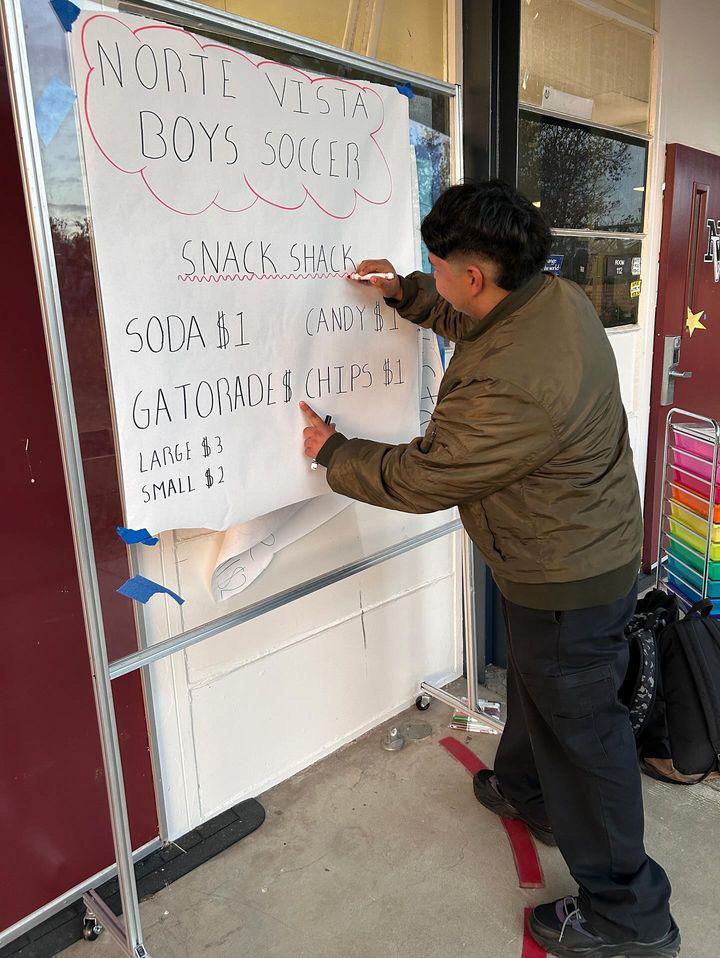 NORTE VISTA
BOYS SOCCER
SNACK SHACK
SODA $1 CANDY $1
GATORADE $ CHIPS $1
LARGE $3
SMALL $2
ROOM
112